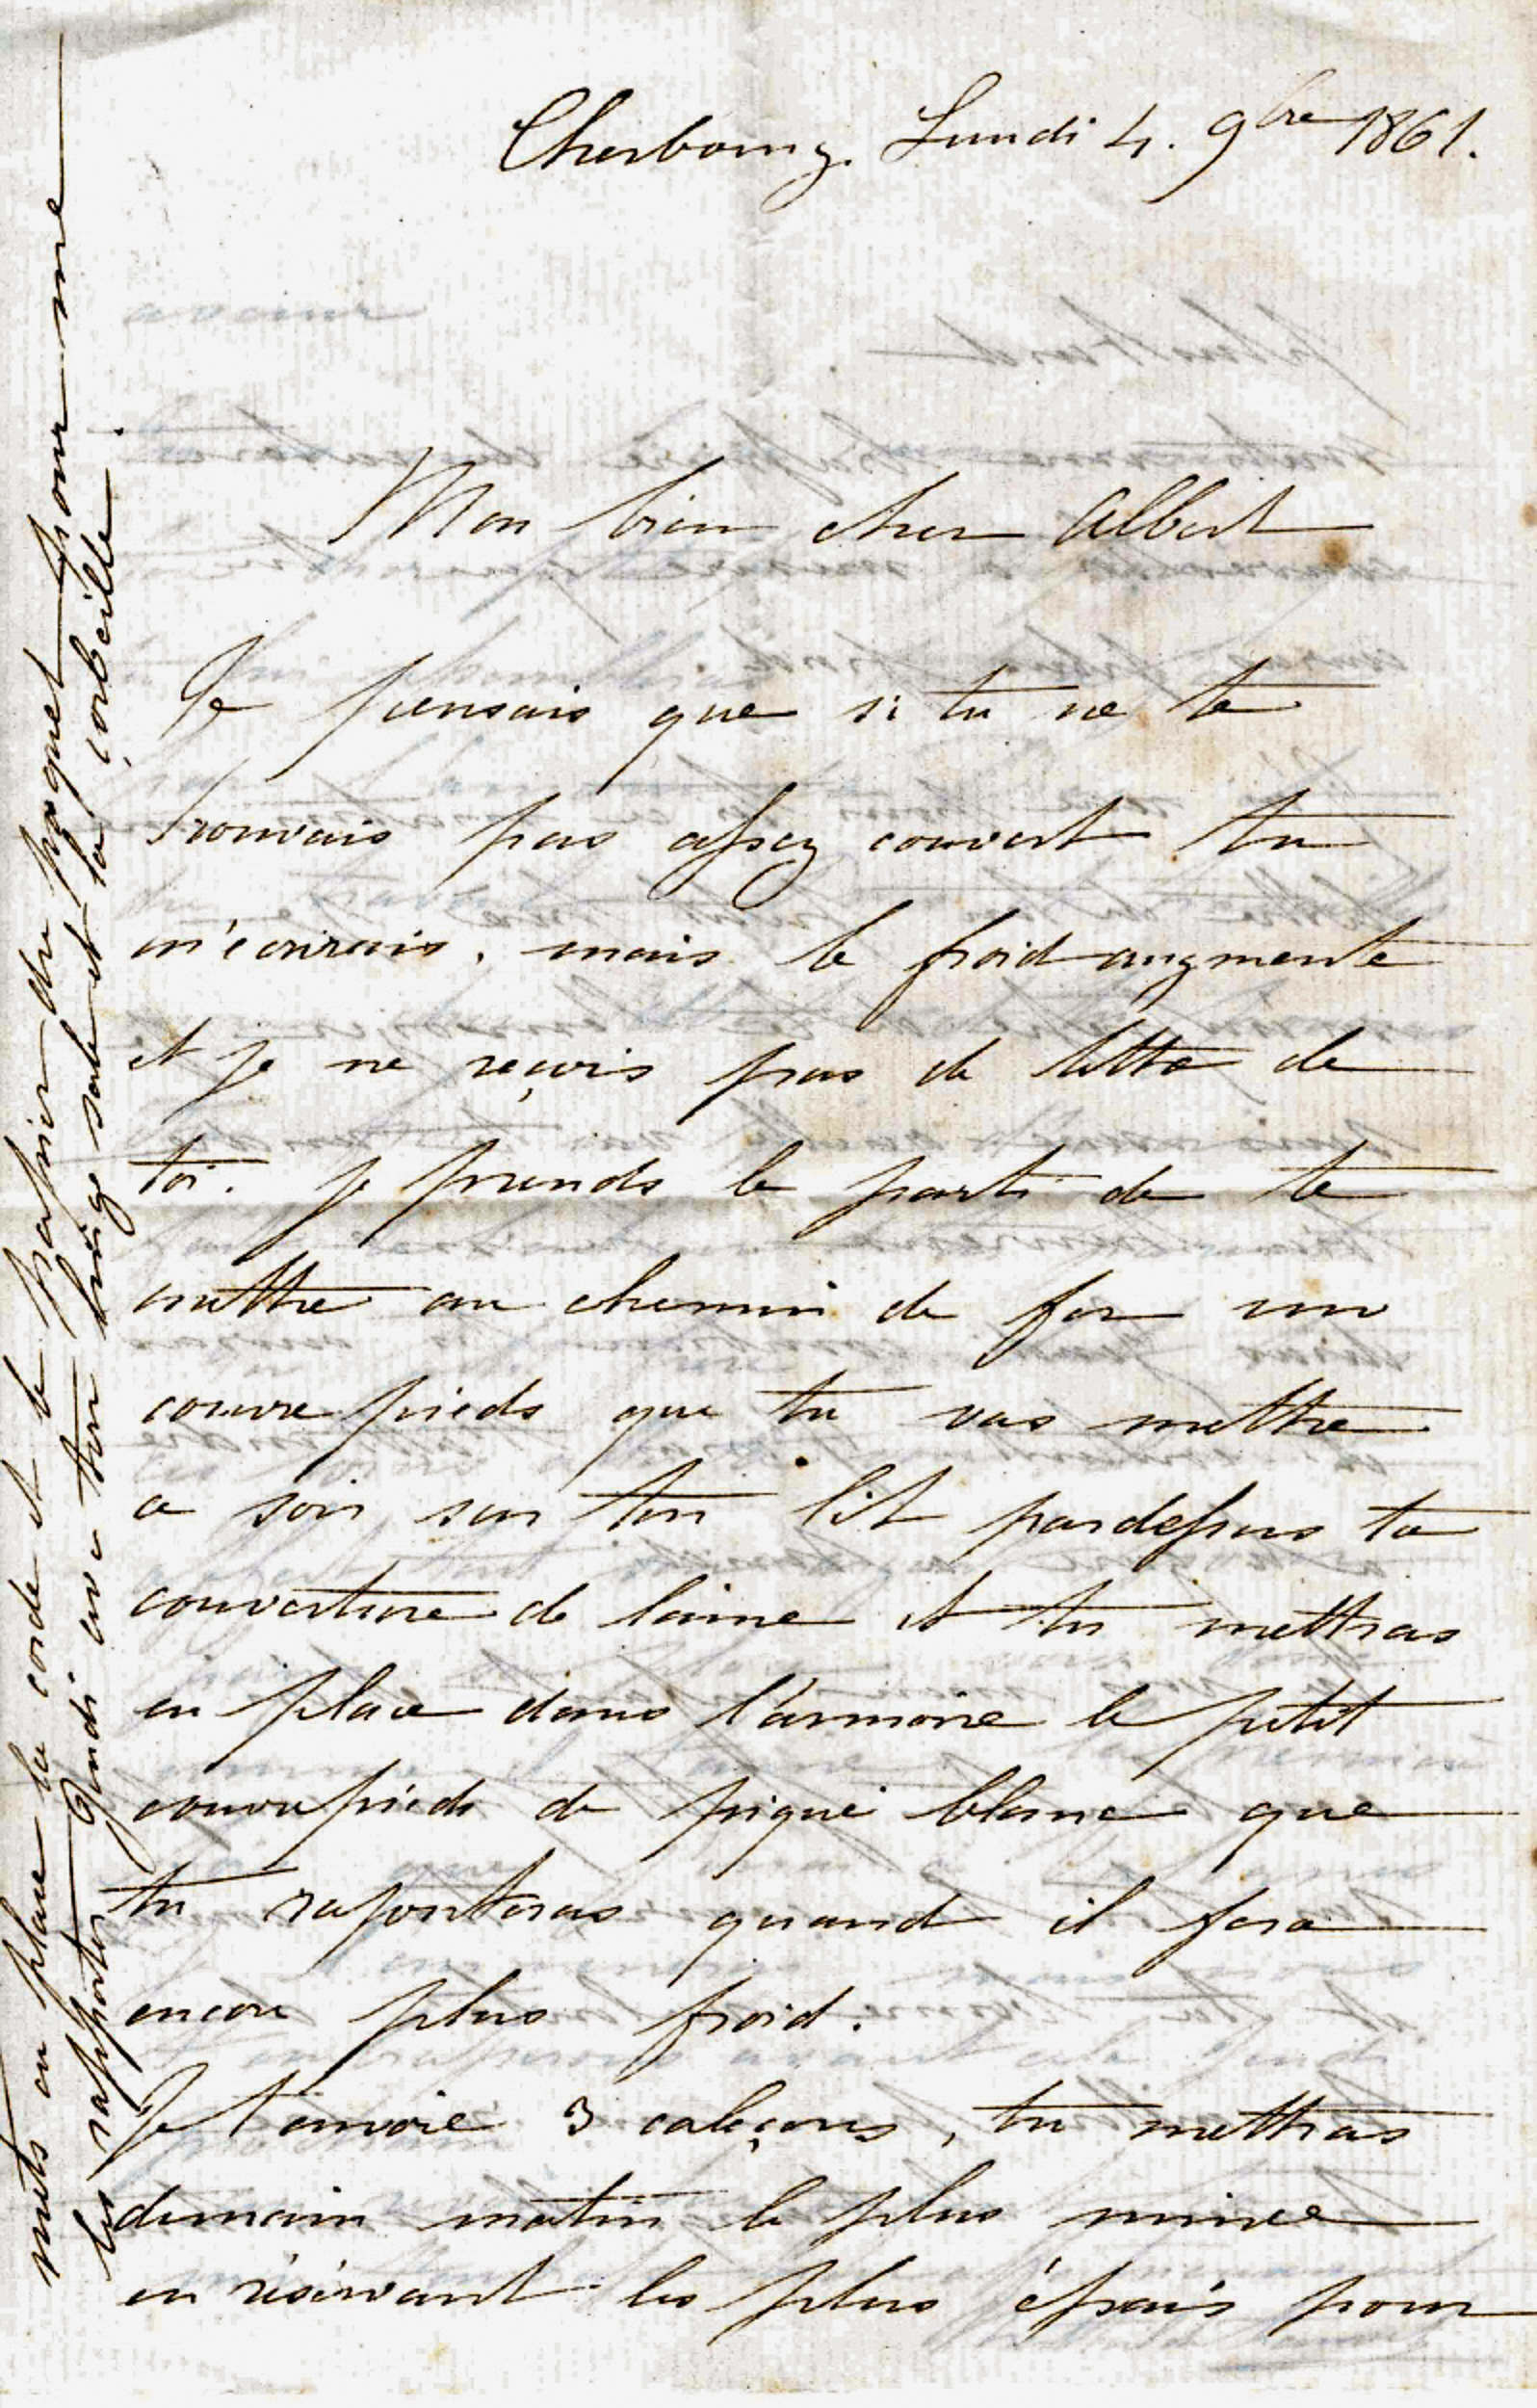 Cherbourg. Lundi 4. 9bre 1861.
Mon bien cher Albert
Je pensais que si tu ne te
trouvais pas assez couvert tu
m'écrirais, mais le froid augmente
et je ne reçois pas de lettre de
toi. je prends le parti de te
mettre au chemin de fer un
couvre pieds que tu vas mettre
ce soir sur ton lit pardessus ta
couverture de laine et tu mettras
en place dans l'armoire le petit
couvrepieds de piqué blanc que
tu rajouteras quand il fera
encore plus froid.
Je t'envoie 3 caleçons, tu mettras
demain matin le plus mince
en réservant les plus épais pour
mets en place la corde et le papier du paquet pour me
les rapporter Jeudi avec ton linge sale et ta corbeille.